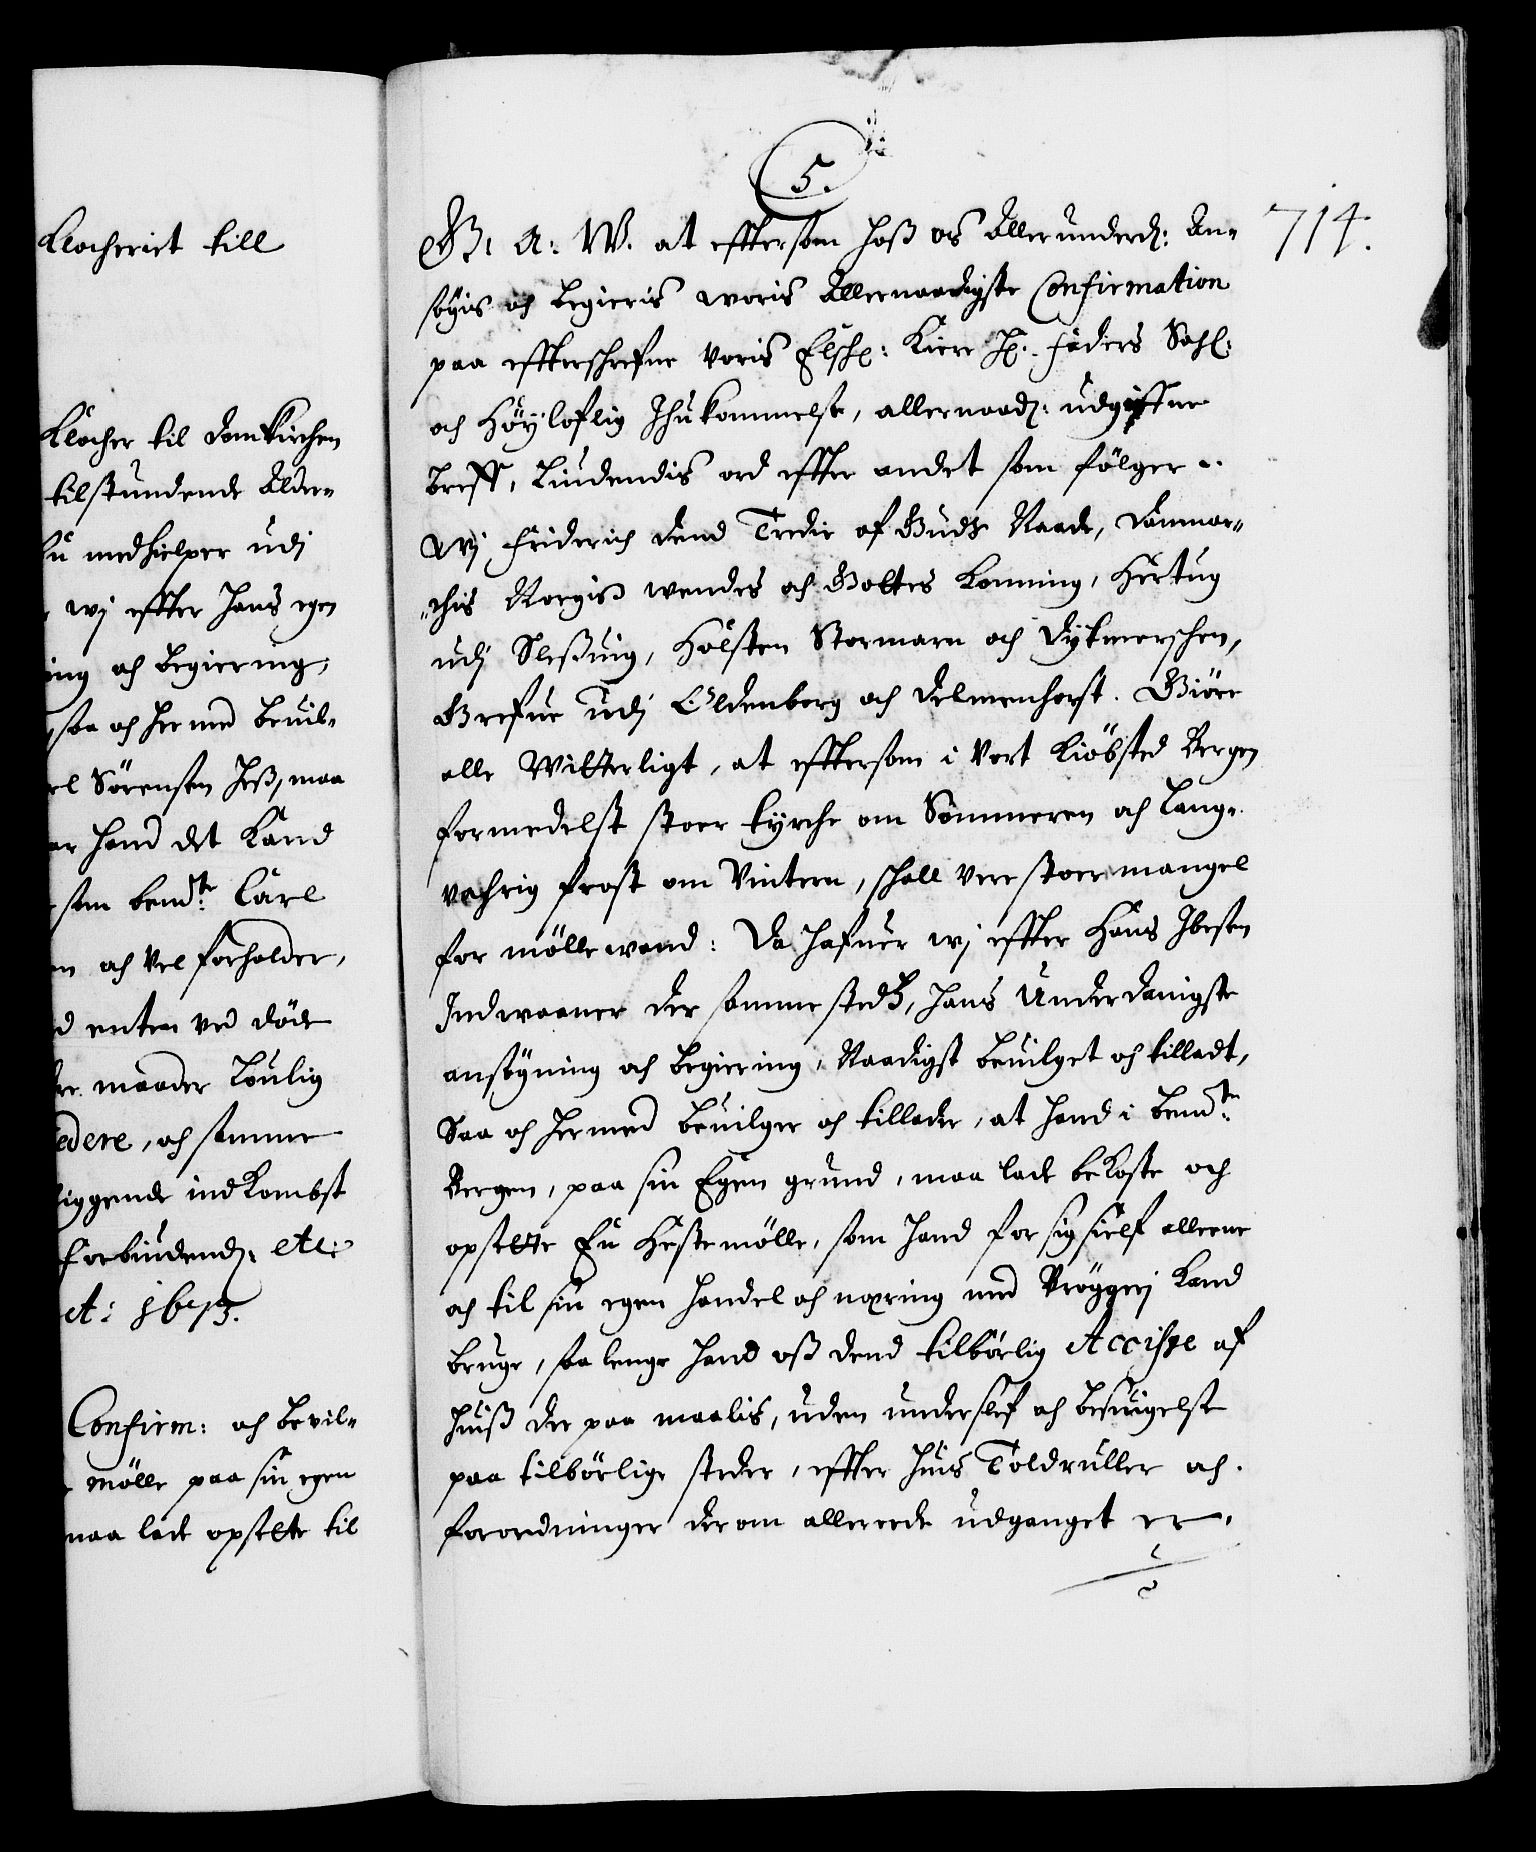 Klocheriet till
Klocher til Domkirchen
tilstundende Alder-
medhielper udj
wj effter hans egen
ing och begiering,
saa och hermed bevil-
Sörensen Heß, maa
hand det kand
som bemte: Carl
och vel forholder,
enten ved döde
maader Loulig
cedere, och samme
liggende indkombst
Forbindendis: etc:
A: 1673.
Confirm: och bevil-
mölle paa sin egen
maa lade opsette til
5.
714.
G: A: W. at efftersom hoß os Allerunderd: An-
søgis och begieris woris Allernaadigste Confirmation
paa effterschrefne voris Elsch: Kiere H: Faders Sahl:
och Höyloflig Ihukommelse, allernaad: udgiffne
breff, Liudendis ord effter andet som fölger..
Wj Friderich dend Tredie af Guds Naade, Danmar-
"chis Norgis wendes och Gottes Konning, Hertug
udj Sleßuig, Holsten Stormarn och Dytmerschen,
Grefue udj Oldenborg och Delmenhorst. Giöre
alle Witterligt, at efftersom i Vort Kiöbsted Bergen
formedelst stoer tyrche om Sommeren och Lang-
vehrig frost om Vintern, schall vere stoer mangel
for möllewand: Da hafuer wj effter Hans Ibesen
Indwaaner der sammesteds, hans Underdanigste
ansøgning och begiering, Naadigst beuilget och tilladt,
Saa och hermed beuilger och tillader, at hand i bemte:
Bergen, paa sin Egen grund, maa lade bekoste och
opsette En Hestemölle, som hand for sig sielf alleene
och til sin egen handel och næring med Bröggerj kand
bruge, saa lenge hand oß dend tilbörlig Accisse af
huiß der paa maalis, uden underslef och besuigelse
paa tilbörlige steder, effter huis Toldruller och
forordninger derom allerede udganget er,